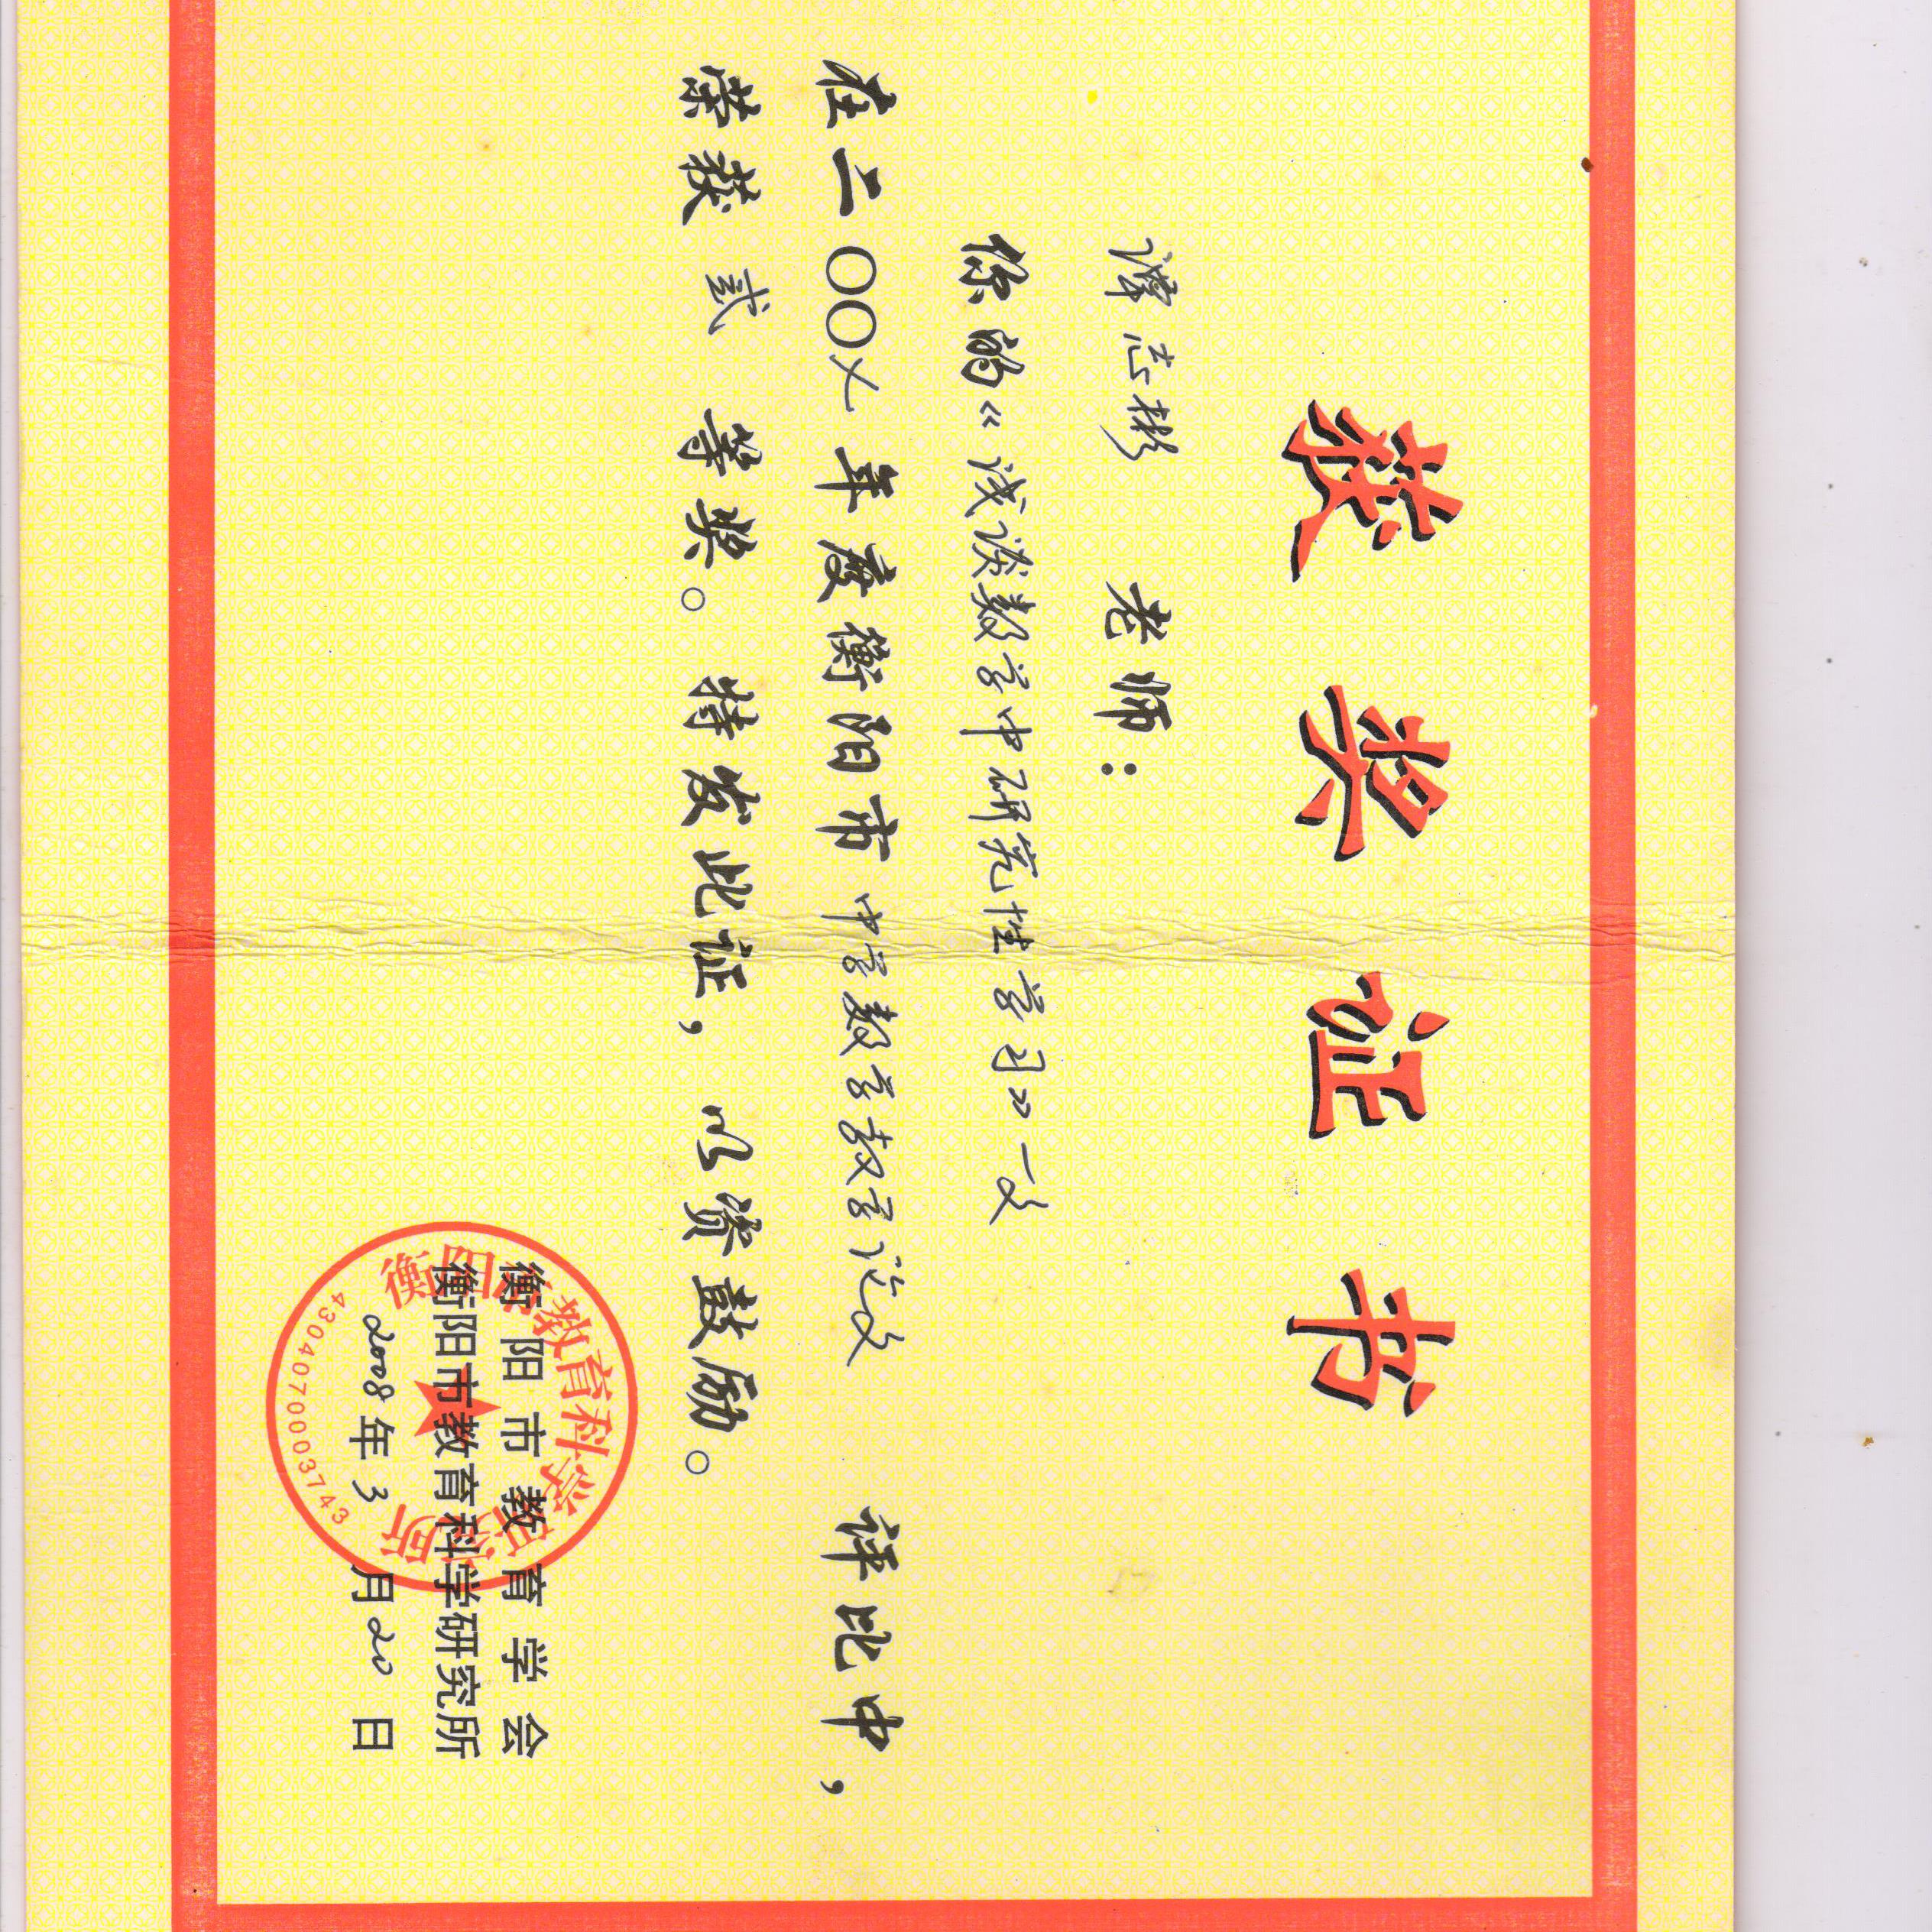 获奖证书
谭志彬 老师：
你的《浅谈数学中研究性学习》一文
在二〇〇七年度衡阳市中学数学教学论文 评比中，
荣获 贰 等奖。特发此证，以资鼓励。
衡阳市教育学会
衡阳市教育科学研究所
2008年3月20日
衡阳市教育科学研究所
4304070003743